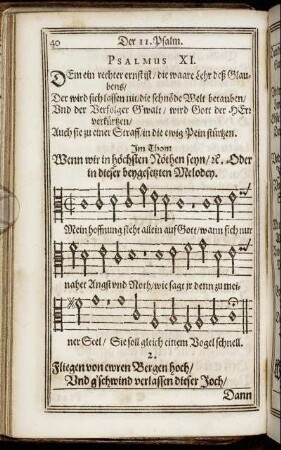 40
Der 11. Psalm.
PSALMUS XI.
DEm ein rechter ernst ist / die waare Lehr deß Glau-
bens /
Der wird sich lassen nit / die schnöde Welt betauben /
Und der Verfolger G'walt / wird Gott der HErr
verkürtzen /
Auch sie zu einer Straff / in die ewig Pein stürtzen.
Im Thon:
Wenn wir in höchsten Nöthen seyn / ꝛc. Oder
in dieser beygesetzten Melodey.
Mein hoffnung steht allein auf Gott / wann sich nur
nahet Angst und Noth / wie sagt jr denn zu mei-
ner Seel / Sie soll gleich einem Vogel schnell.
2.
Fliegen von ewren Bergen hoch /
Und g'schwind verlassen dieser Joch /
Dann